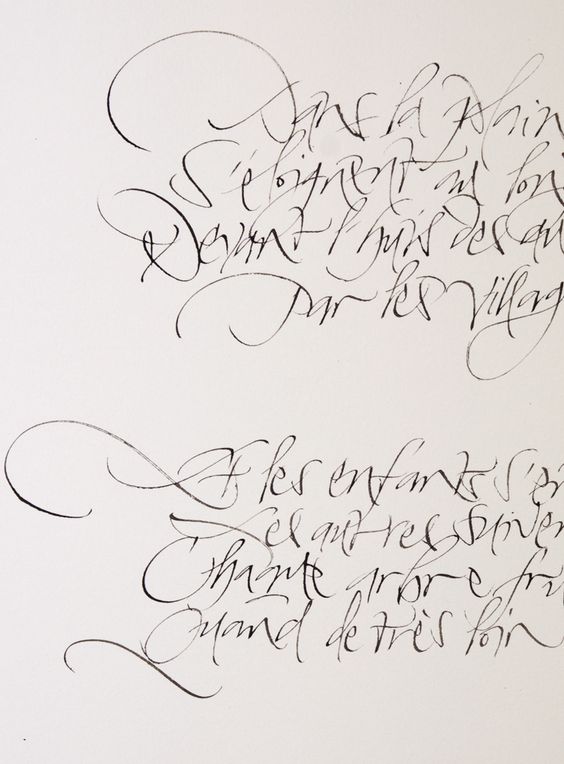 Dans la plain
S'éloignent au loin
Devant l'huis des au
par les villag
Et les enfants s'en
Les autres suiven
Chaque arbre fru
Quand de très loin